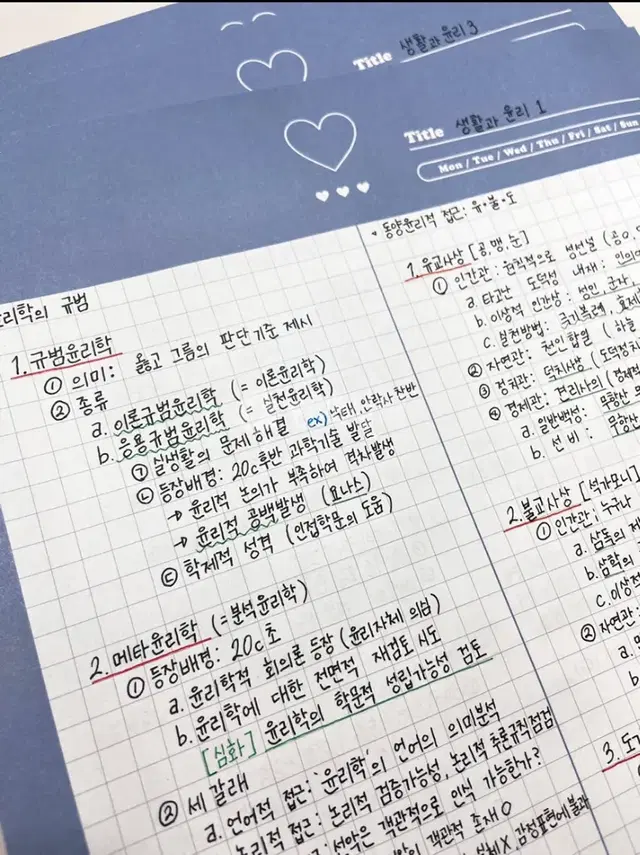 Title 생활과 윤리 3
Title 생활과 윤리 1
Mon / Tue / Wed / Thu / Fri / Sat / Sun
윤리학의 규범
1. 규범윤리학
① 의미: 옳고 그름의 판단기준 제시
② 종류
a. 이론규범윤리학 (= 이론윤리학)
b. 응용규범윤리학 (= 실천윤리학)
㉠ 실생활의 문제해결 ex) 낙태, 안락사 찬반
㉡ 등장배경: 20c후반 과학기술 발달
→ 윤리적 논의가 부족하여 격차발생
→ 윤리적 공백발생 (요나스)
㉢ 학제적 성격 (인접학문의 도움)
2. 메타윤리학 (=분석윤리학)
① 등장배경: 20c초
a. 윤리학적 회의론 등장 (윤리자체 의심)
b. 윤리학에 대한 전면적 재검토 시도
[심화] 윤리학의 학문적 성립가능성 검토
② 세 갈래
a. 언어적 접근: '윤리학'의 언어의 의미분석
논리적 접근: 논리적 검증가능성, 논리적 추론규칙점검
: 선악은 객관적으로 인식 가능한가?
객관적 존재 O
실체X 감정표현에 불과
• 동양윤리적 접근: 유·불·도
1. 유교사상 [공, 맹, 순]
① 인간관: 원칙적으로 성선설 (공O,
a. 타고난 도덕성 내재:
b. 이상적 인간상: 성인, 군자,
c. 실천방법: 극기복례,
② 자연관: 천인합일
③ 정치관: 덕치사상 (도덕정치
④ 경제관: 견리사의
a. 일반백성: 무항산
b. 선비: 무항산
2. 불교사상 [석가모니]
① 인간관: 누구나
a. 삼독의 제
b. 삼학의
c. 이상적
② 자연관:
a.
b.
3. 도가